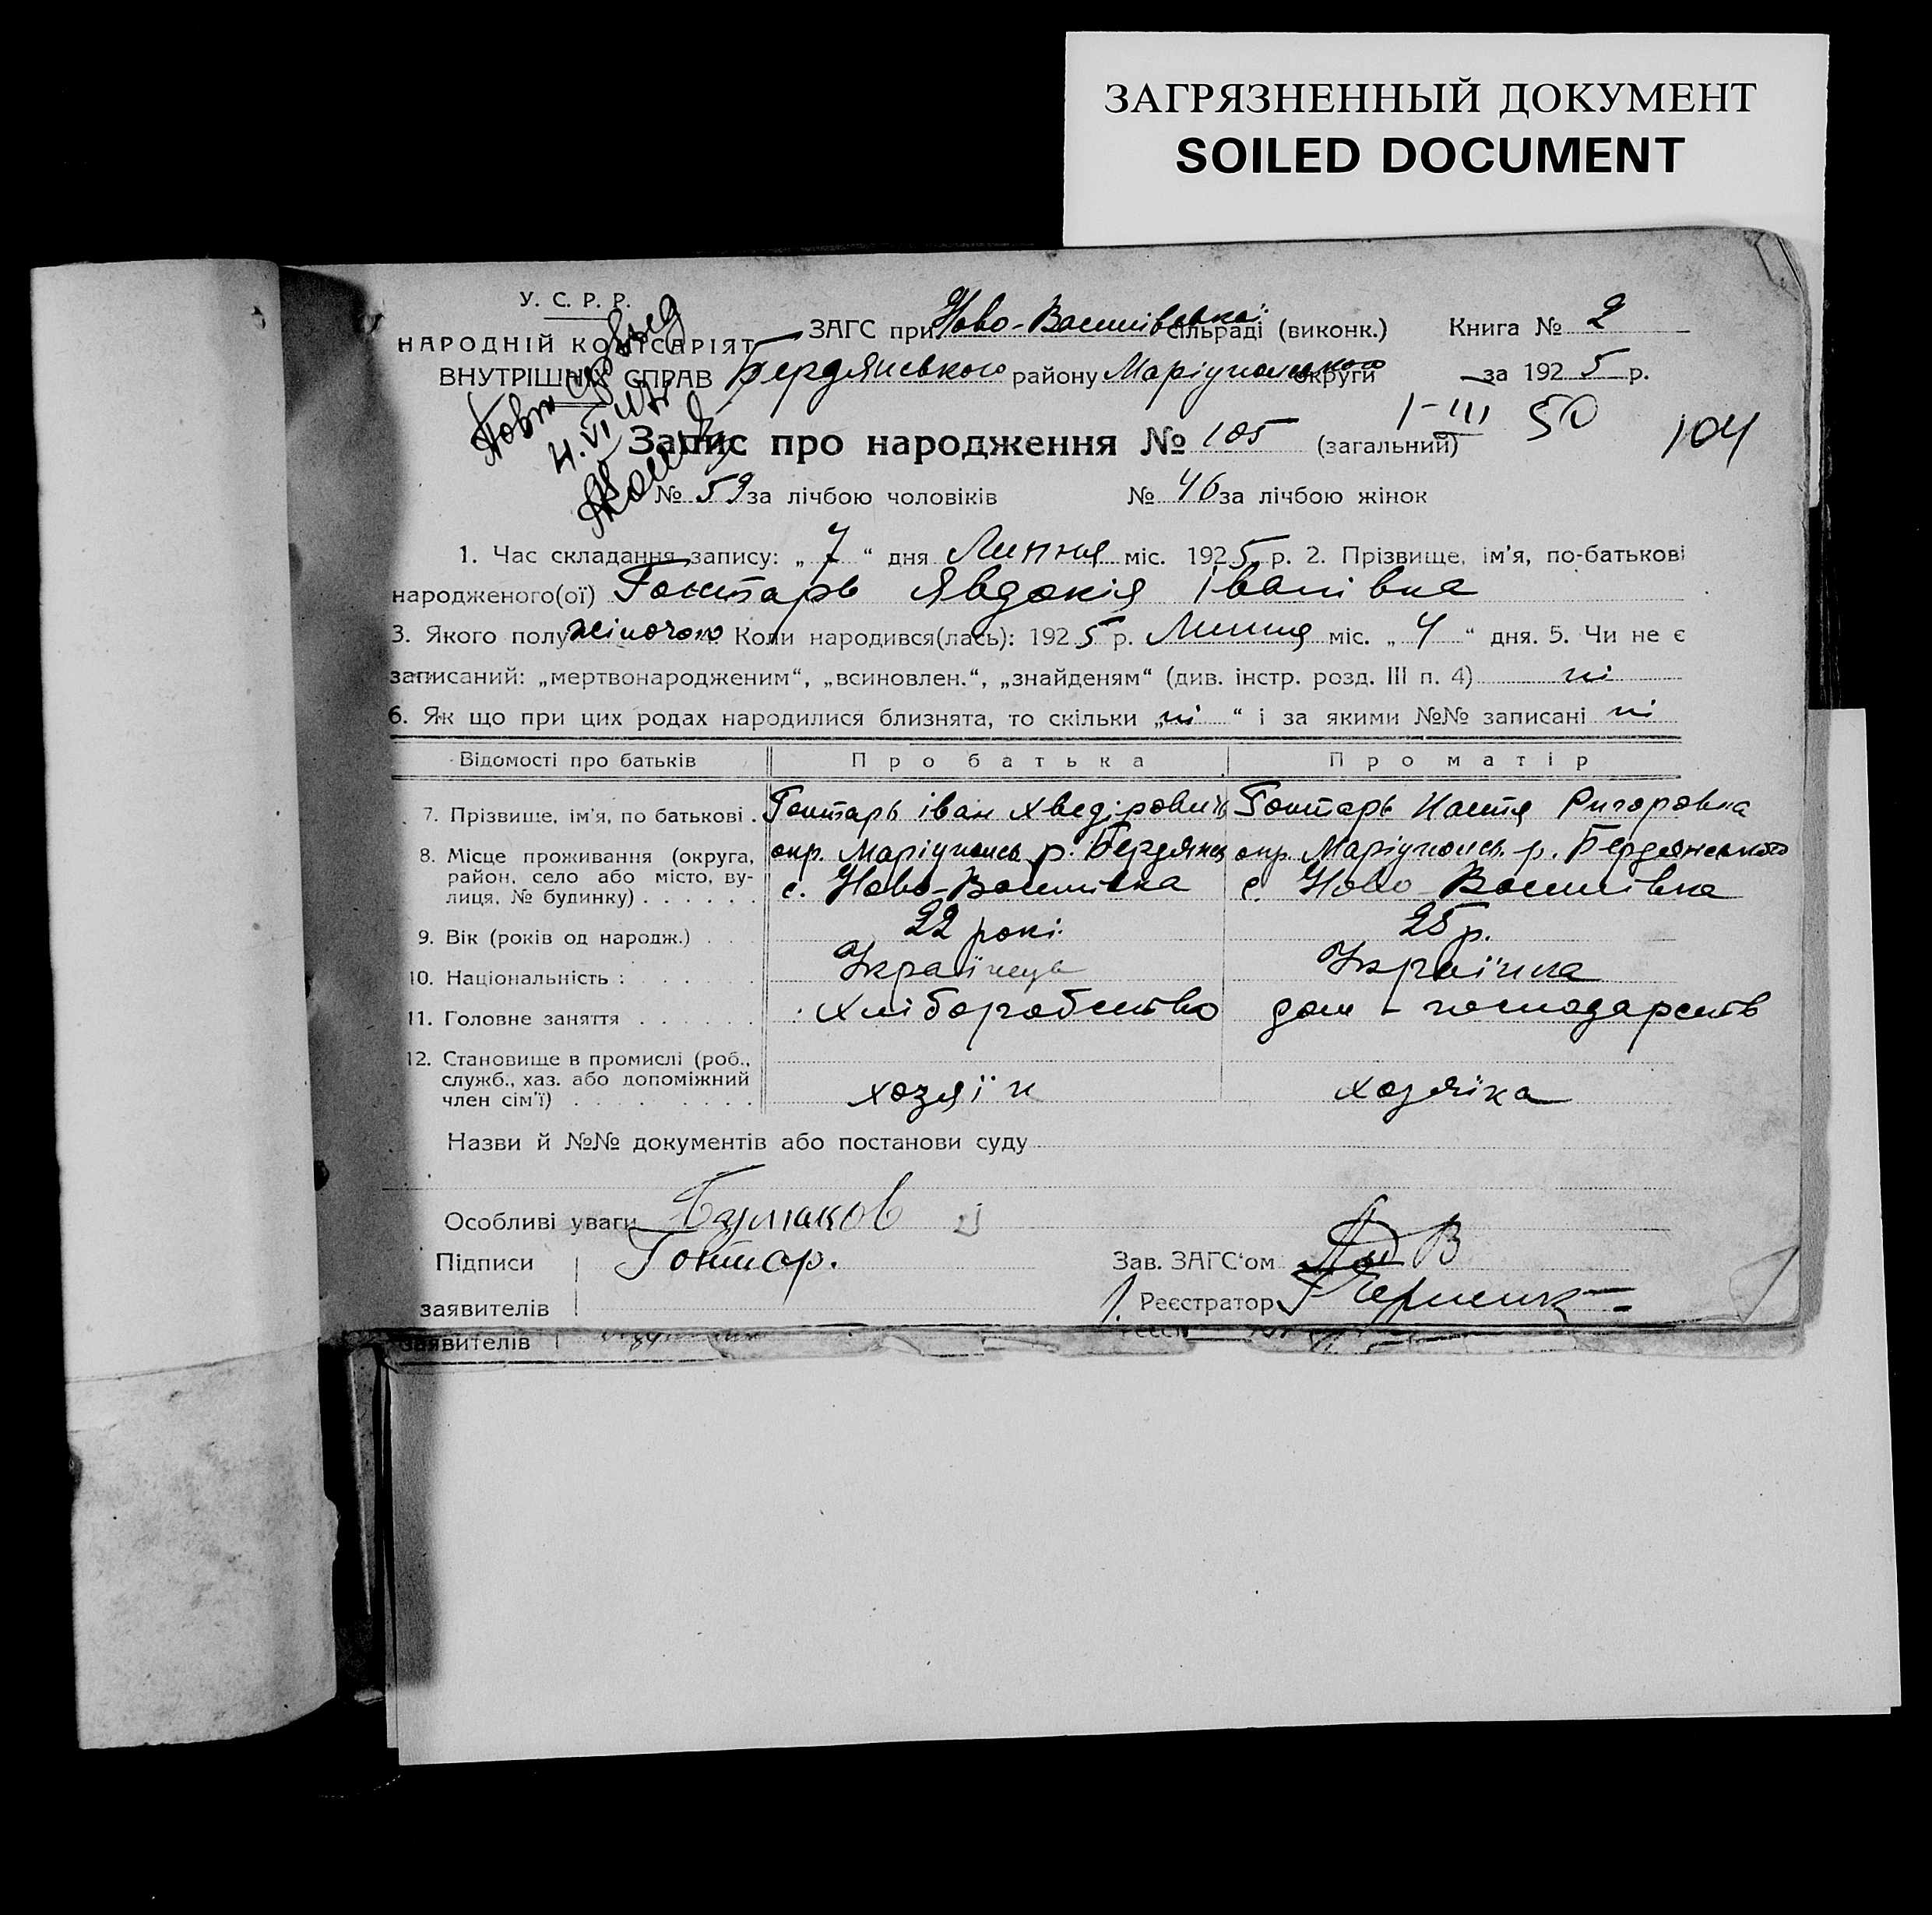 ЗАГРЯЗНЕННЫЙ ДОКУМЕНТ
SOILED DOCUMENT
У. С. Р. Р.
НАРОДНІЙ КОМІСАРІЯТ
ВНУТРІШНІХ СПРАВ
ЗАГС при Ново-Василівській сільраді (виконк.) Книга № 2
Бердянського району Маріупольського округи за 1925 р.
I-III 50 104
Запис про народження № 105 (загальний)
№ 59 за лічбою чоловіків № 46 за лічбою жінок
1. Час складання запису: „ 7 “ дня Липня міс. 1925 р. 2. Прізвище, ім'я, по-батькові
народженого(ої) Гонтарь Явдокія Іванівна
3. Якого полу жіночого Коли народився(лась): 1925 р. Липня міс. „ 4 “ дня. 5. Чи не є
записаний: „мертвонародженим“, „всиновлен.“, „знайденям“ (див. інстр. розд. III п. 4) ні
6. Як що при цих родах народилися близнята, то скільки „ні“ і за якими №№ записані ні
Відомості про батьків Про батька Про матір
7. Прізвище, ім'я, по батькові . Гонтарь Іван Хведірович Гонтарь Настя Ригоровна
8. Місце проживання (округа, район, село або місто, вулиця, № будинку) . . . . . .
окр. Маріупольс. р. Бердянськ окр. Маріупольс. р. Бердянського
с. Ново-Василівка с. Ново-Василівка
9. Вік (років од народж.) . . . 22 рокі 25 р.
10. Національність : . . . . . . Українець Українка
11. Головне заняття . . . . . . Хліборобство дом - господарств
12. Становище в промислі (роб., служб., хаз. або допоміжний член сім'ї) . . . . . . . . .
хозяїн хозяїка
Назви й №№ документів або постанови суду
Особливі уваги
Підписи Гонтар. Зав. ЗАГС'ом
заявителів Реєстратор
заявителів